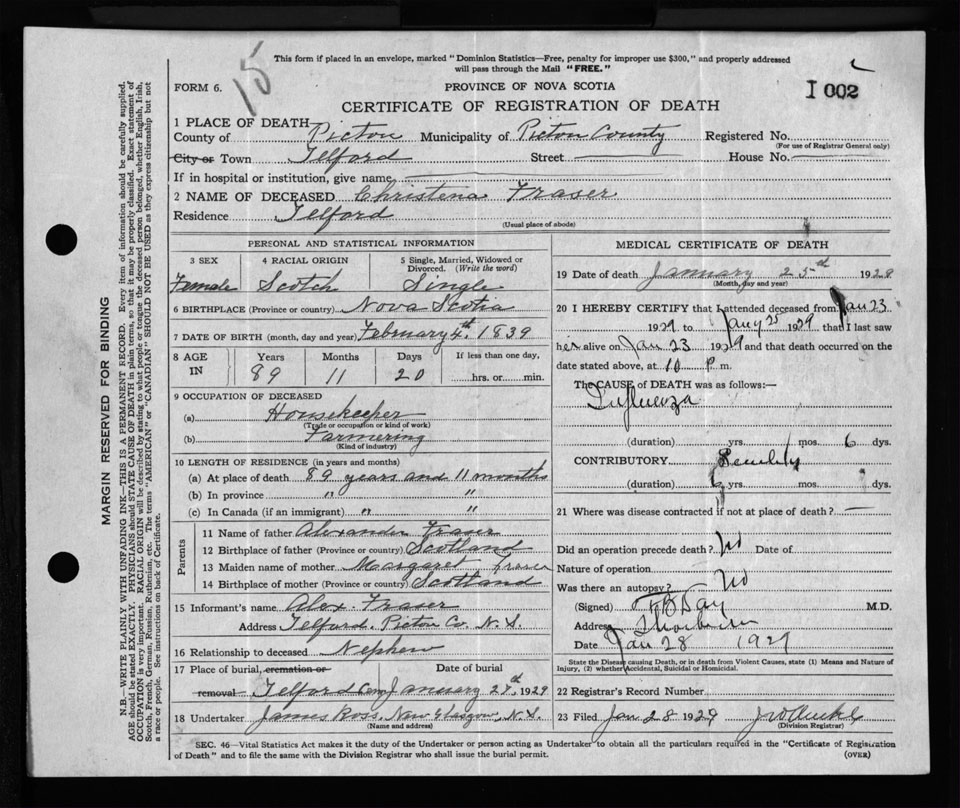 15
This form if placed in an envelope, marked "Dominion Statistics—Free, penalty for improper use $300," and properly addressed
will pass through the Mail "FREE."
FORM 6.
PROVINCE OF NOVA SCOTIA
I 002
CERTIFICATE OF REGISTRATION OF DEATH
1 PLACE OF DEATH
County of Pictou Municipality of Pictou County Registered No.
(For use of Registrar General only)
City or Town Telford Street House No.
If in hospital or institution, give name
2 NAME OF DECEASED Christena Fraser
Residence Telford
(Usual place of abode)
PERSONAL AND STATISTICAL INFORMATION
3 SEX 4 RACIAL ORIGIN 5 Single, Married, Widowed or Divorced. (Write the word)
Female Scotch Single
6 BIRTHPLACE (Province or country) Nova Scotia
7 DATE OF BIRTH (month, day and year) February 4th, 1839
8 AGE IN Years Months Days If less than one day,
89 11 20 hrs. or min.
9 OCCUPATION OF DECEASED
(a) Housekeeper
(Trade or occupation or kind of work)
(b) Farmering
(Kind of industry)
10 LENGTH OF RESIDENCE (in years and months)
(a) At place of death 89 years and 11 months
(b) In province " "
(c) In Canada (if an immigrant) " "
Parents
11 Name of father Alexander Fraser
12 Birthplace of father (Province or country) Scotland
13 Maiden name of mother Margaret Fraser
14 Birthplace of mother (Province or country) Scotland
15 Informant's name Alex. Fraser
Address Telford, Pictou Co. N.S.
16 Relationship to deceased Nephew
17 Place of burial, cremation or Date of burial
removal Telford Cem January 27th, 1929
18 Undertaker James Ross, New Glasgow, N.S.
(Name and address)
MEDICAL CERTIFICATE OF DEATH
19 Date of death January 25th 1929
(Month, day and year)
20 I HEREBY CERTIFY that I attended deceased from Jan 23
1929 to Jany 25 1929 that I last saw
her alive on Jan 23 1929 and that death occurred on the
date stated above, at 10 P. m.
The CAUSE of DEATH was as follows:—
Influenza
(duration) yrs. mos. 6 dys.
CONTRIBUTORY
(duration) 6 yrs. mos. dys.
21 Where was disease contracted if not at place of death? —
Did an operation precede death? No Date of
Nature of operation
Was there an autopsy? No
(Signed) Day M.D.
Address Thorburn
Date Jan 28 1929
State the Disease causing Death, or in death from Violent Causes, state (1) Means and Nature of
Injury, (2) whether Accidental, Suicidal or Homicidal.
22 Registrar's Record Number
23 Filed Jan 28 1929
(Division Registrar)
SEC. 46—Vital Statistics Act makes it the duty of the Undertaker or person acting as Undertaker to obtain all the particulars required in the "Certificate of Registration
of Death" and to file the same with the Division Registrar who shall issue the burial permit. (OVER)
MARGIN RESERVED FOR BINDING
N.B.—WRITE PLAINLY WITH UNFADING INK—THIS IS A PERMANENT RECORD. Every item of information should be carefully supplied.
AGE should be stated EXACTLY. PHYSICIANS should STATE CAUSE OF DEATH in plain terms, so that it may be properly classified. Exact statement of
OCCUPATION is very important. RACIAL ORIGIN will be described by stating to what people or tongue the deceased person belonged, whether English, Irish,
Scotch, French, German, Russian, Ruthenian, etc. The terms "AMERICAN" or "CANADIAN" SHOULD NOT BE USED as they express citizenship but not
a race or people. See instructions on back of Certificate.